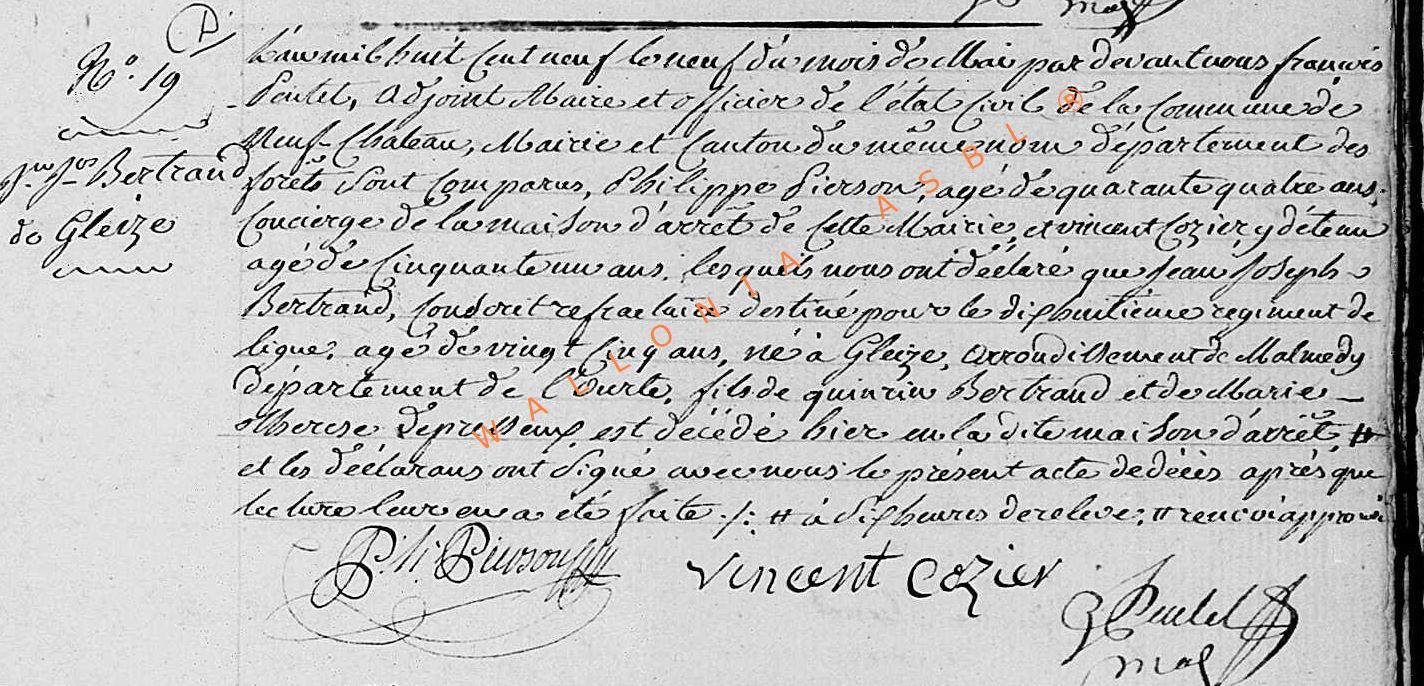 D
N.° 19
Jn Jos Bertrand
de Gleize
L'an mil huit Cent neuf le neuf du mois de Mai par devant nous francois
Poulet, adjoint Maire et officier de l'état Civil de la Commune de
Neuf-Chateau, Mairie et Canton du même nom département des
forêts Sont Comparus, Philippe Pierson, agé de quarante quatre ans,
Concierge de la maison d'arrêt de Cette Mairie, et vincent Cozier, y détenu
agé de Cinquante un ans, lesquels nous ont déclaré que Jean Joseph
Bertrand, Conscrit refractaire destiné pour le dixhuitième regiment de
ligne, agé de vingt Cinq ans, né à Gleize, arrondissement de Malmedy
département de l'Ourte, fils de quirin Bertrand et de Marie -
therese Depresseux est décédé hier en la dite maison d'arrêt #
et les déclarans ont Signé avec nous le présent acte de décès après que
lecture leur en a été faite ./. # à dix heures de relevé, # renvoi approuvé
Ph: Pierson
vincent cozier
Poulet
WALLONIA ASBL ®